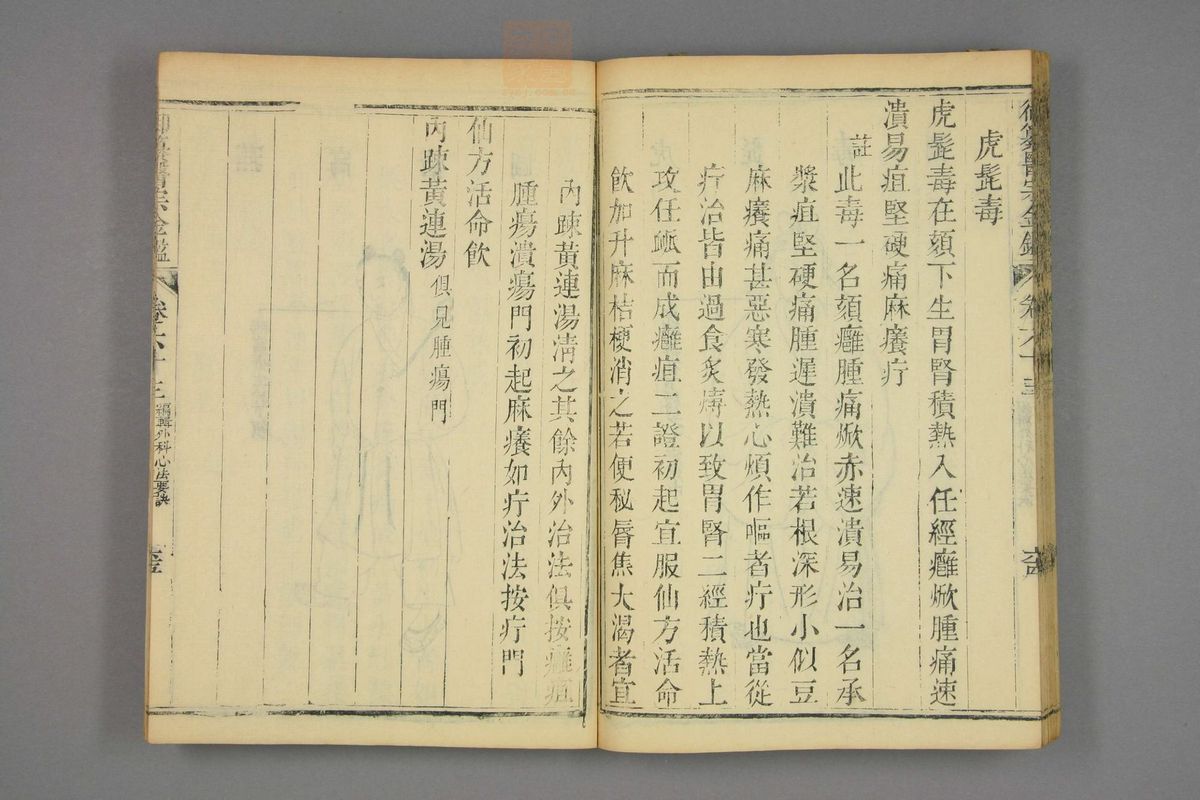 御纂醫宗金鑑 卷六十三
虎髭毒
虎髭毒在頦下生胃腎積熱入任經癰焮腫痛速
潰易疽堅硬痛麻癢疔
註此毒一名頦癰腫痛焮赤速潰易治一名承
漿疽堅硬痛腫遲潰難治若根深形小似豆
麻癢痛甚惡寒發熱心煩作嘔者疔也當從
疔治皆由過食炙煿以致胃腎二經積熱上
攻任脈而成癰疽二證初起宜服仙方活命
飲加升麻桔梗消之若便秘唇焦大渴者宜
內踈黃連湯清之其餘內外治法俱按癰疽
腫瘍潰瘍門初起麻癢如疔治法按疔門
仙方活命飲
內踈黃連湯俱見腫瘍門
御纂醫宗金鑑 卷六十三 編輯外科心法要訣